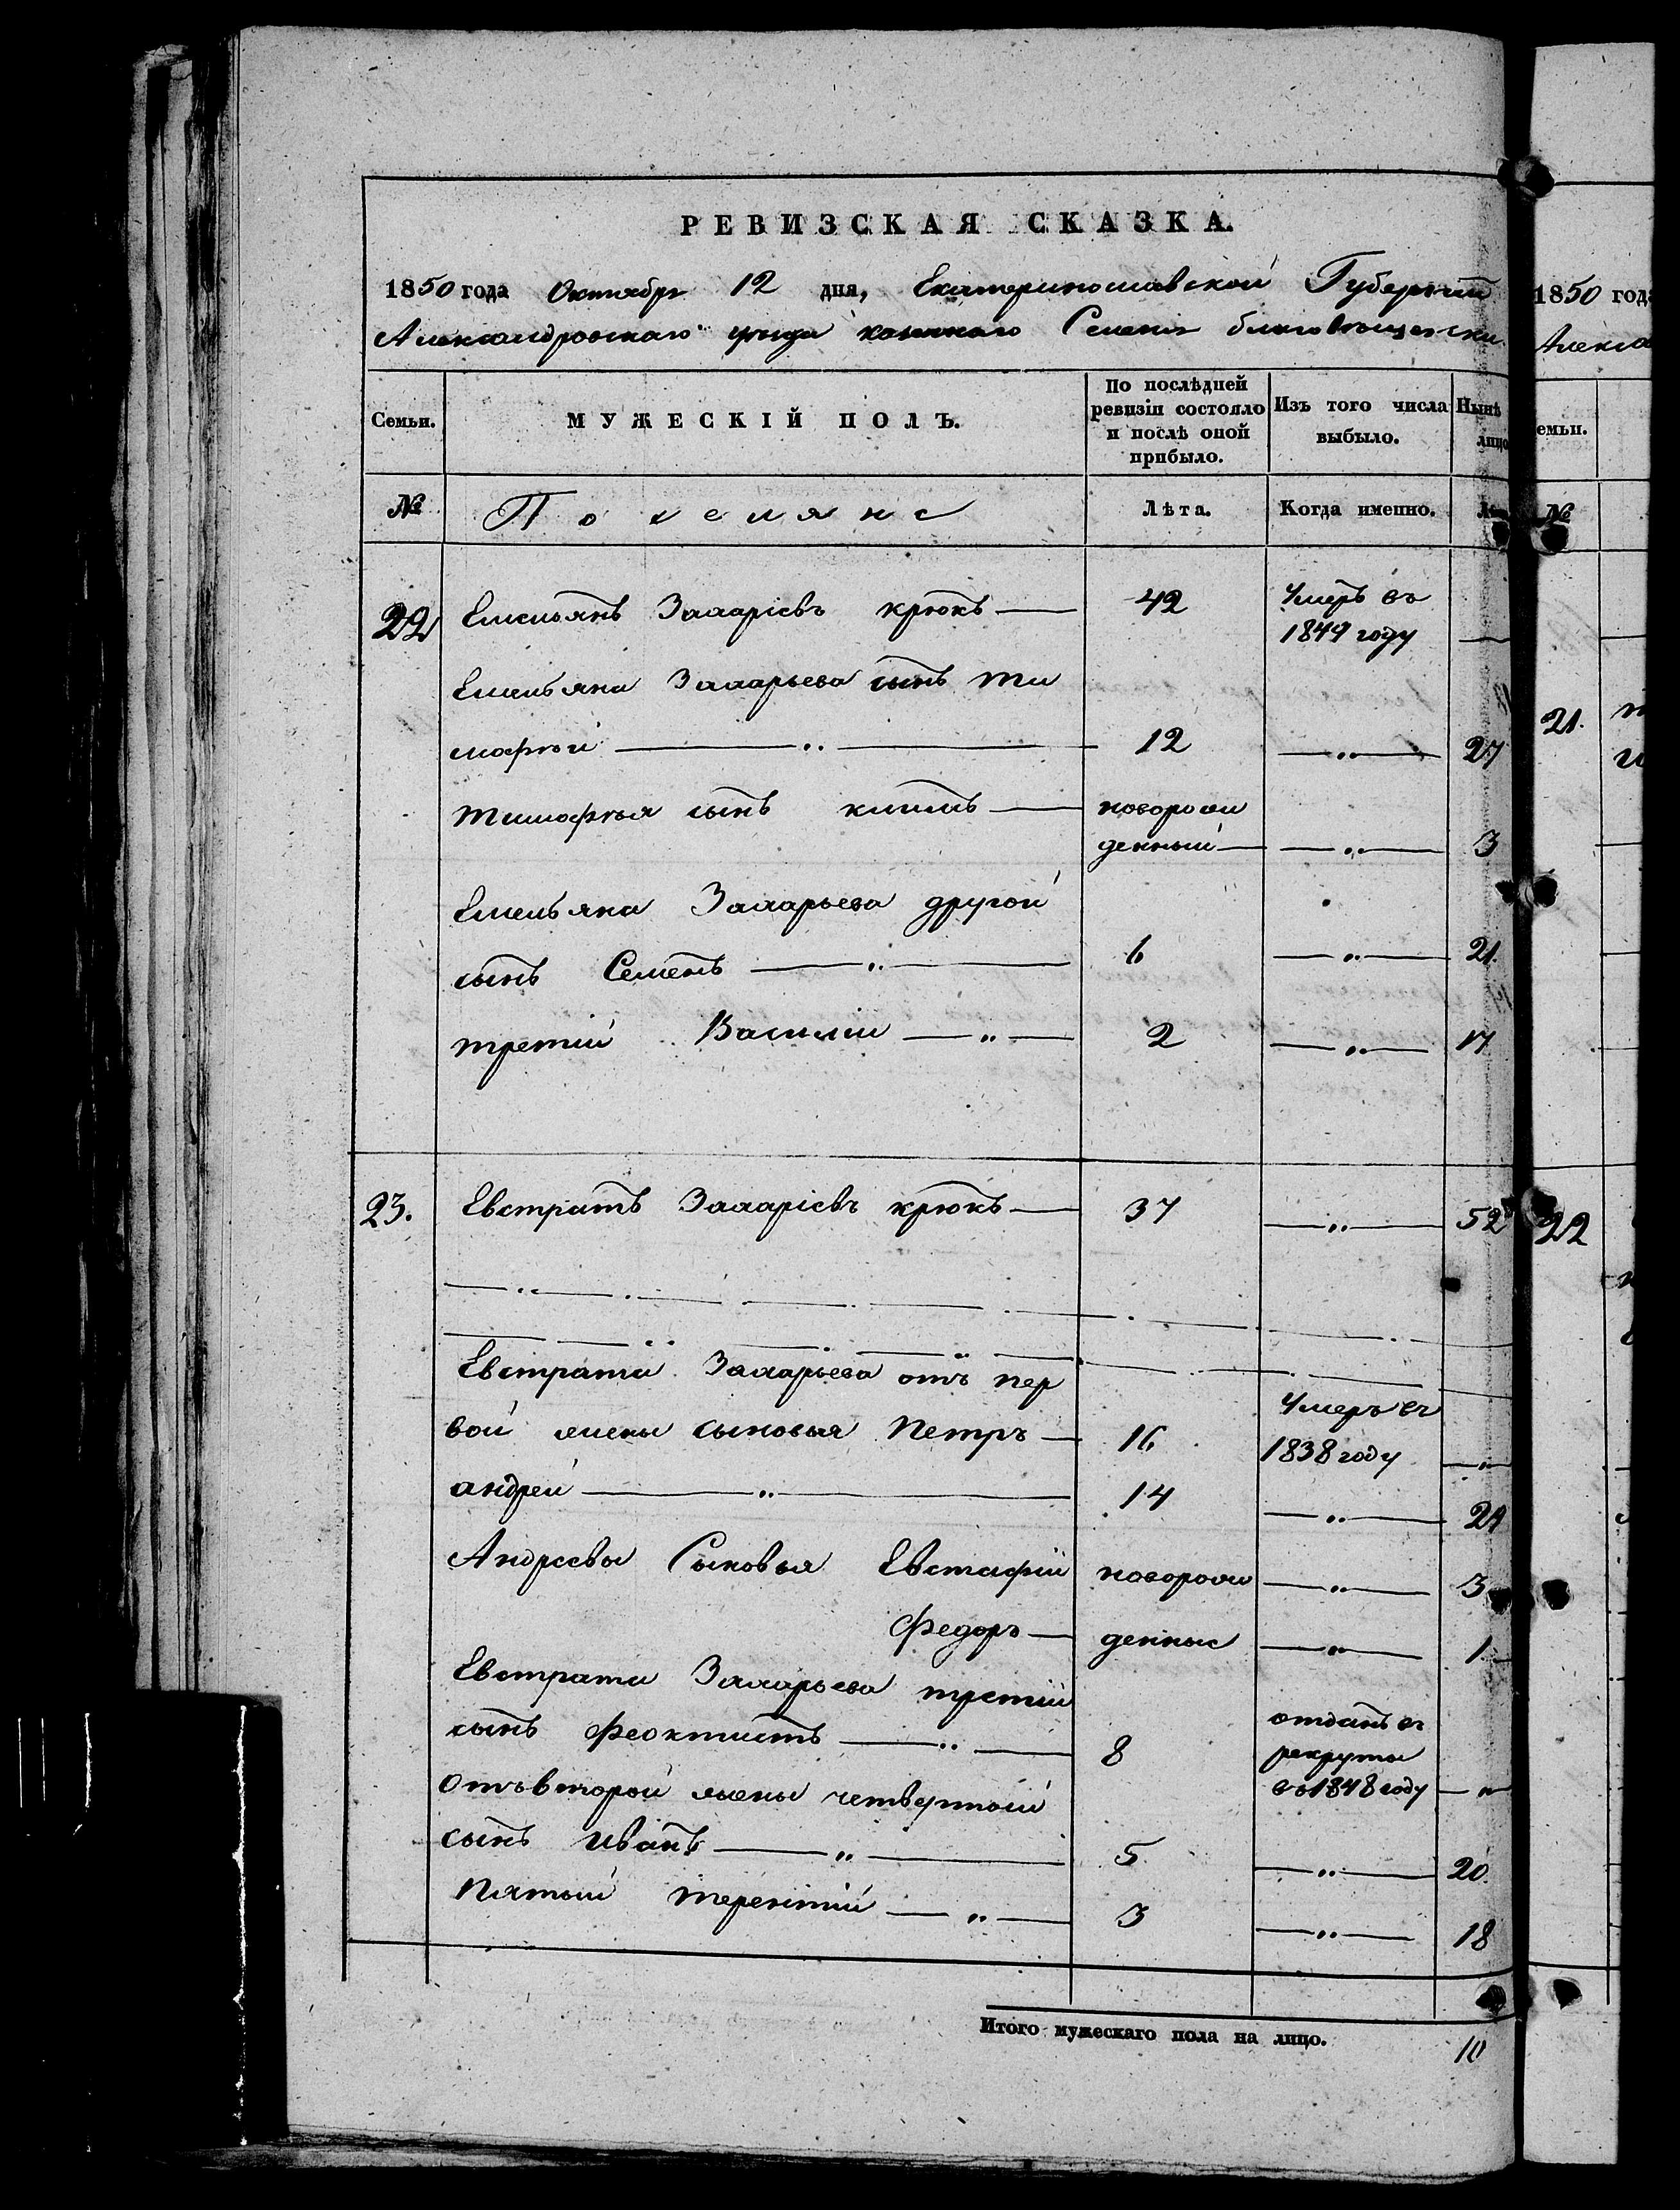 РЕВИЗСКАЯ СКАЗКА.
1850 года Октября 12 дня, Екатеринославской Губернии
Александровскаго уѣзда казеннаго Селения благовещенски
Семьи.
МУЖЕСКІЙ ПОЛЪ.
По послѣдней ревизіи состояло и послѣ оной прибыло.
Изъ того числа выбыло.
Нынѣ лицо
№
Поселяне
Лѣта.
Когда именно.
22 Емельянъ Захаріевъ крюкъ — 42 Умеръ въ 1849 году —
Емельяна Захарьева сынъ Ти
мофѣй — " — 12 — " — 27
Тимофѣя сынъ климъ — новорож
денный — — " — 3
Емельяна Захарьева другой
сынъ Семенъ — " — 6 — " — 21.
третій Василій — " — 2 — " — 17
23. Евстратъ Захаріевъ крюкъ — 37 — " — 52
Евстрата Захарьева отъ пер
вой жены сыновья Петръ — 16 Умеръ въ 1838 году — " —
андрей — " — 14 — " — 29
Андреевы Сыновья Евстафій новорож — " — 3
Федоръ — денные — " — 1
Евстрата Захарьева третій
сынъ Феоктистъ — " — 8 отданъ въ рекруты въ 1848 году — "
Отъ второй жены четвертый
сынъ Иванъ — " — 5 — " — 20.
Пятый терентій — " — 3 — " — 18
Итого мужескаго пола на лицо. 10
1850 года
Алекса
емьи.
№
21.
22